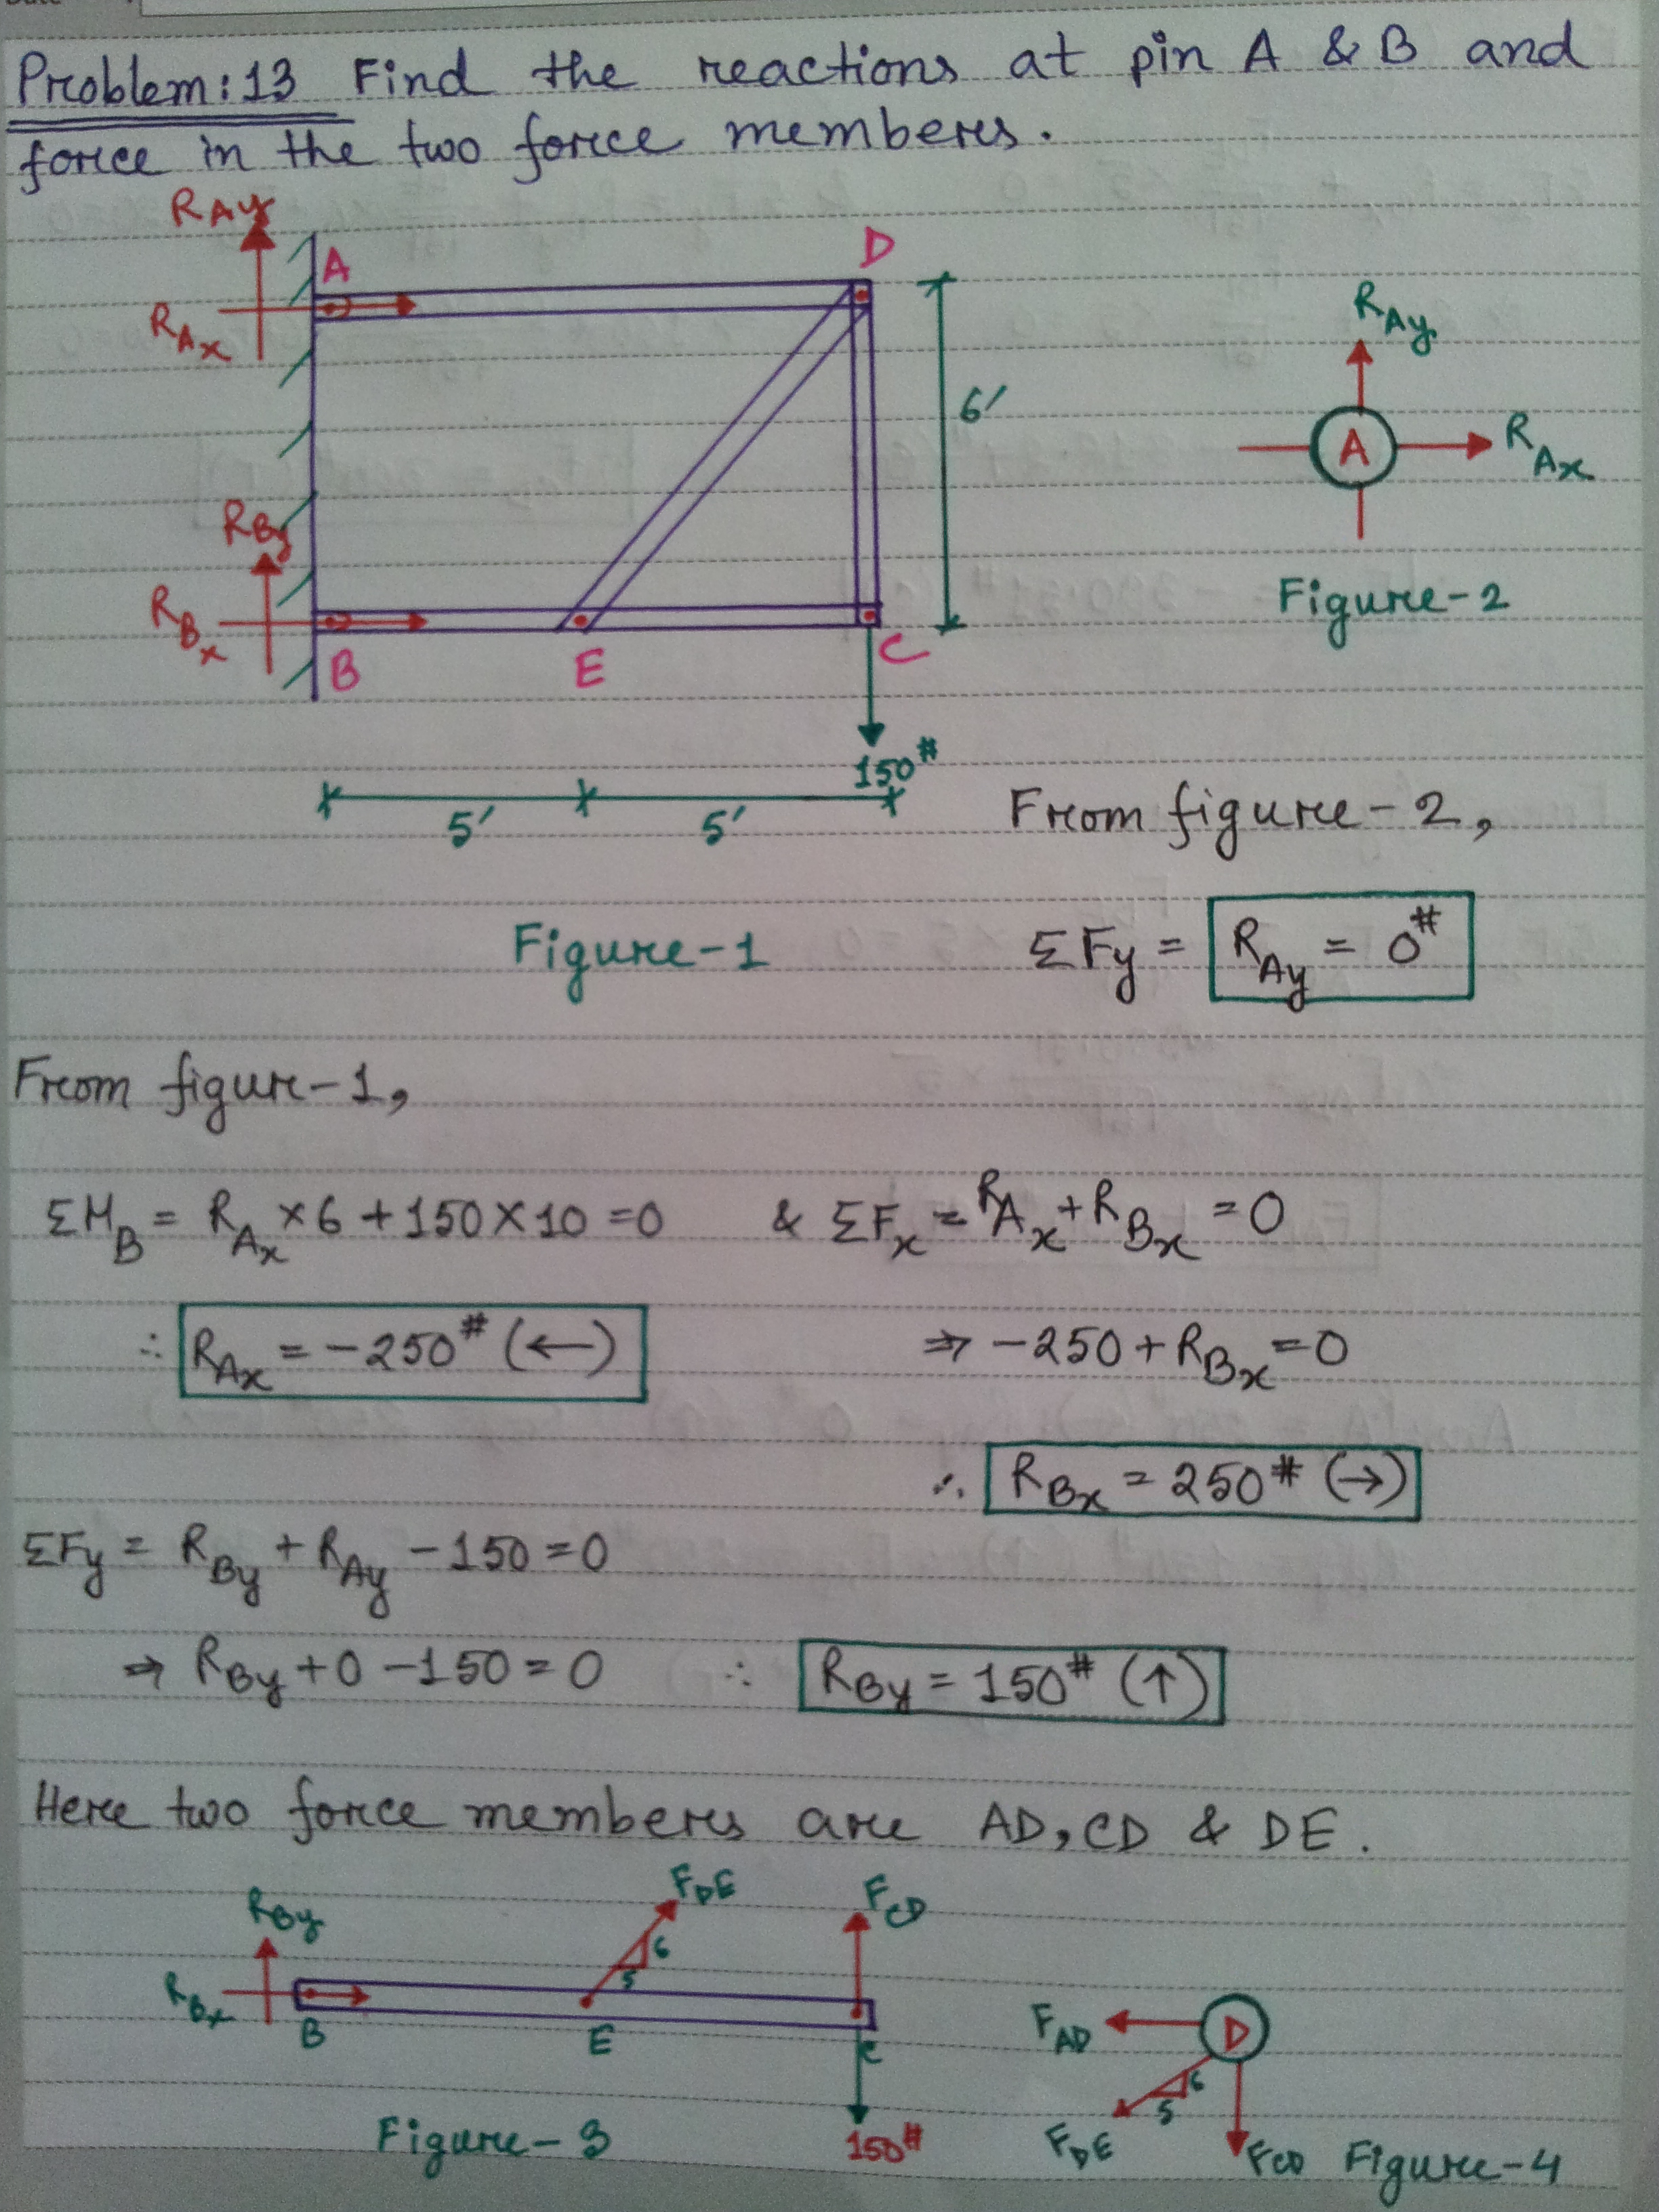 Problem:13 Find the reactions at pin A & B and
force in the two force members.
R_Ay
A
D
R_Ax
6'
R_By
R_Bx
B
E
C
150#
5'
5'
Figure-1
R_Ay
A
R_Ax
Figure-2
From figure-2,
ΣFy = R_Ay = 0#
From figure-1,
ΣM_B = R_Ax × 6 + 150 × 10 = 0 & ΣF_x = R_Ax + R_Bx = 0
∴ R_Ax = -250# (←) ⇒ -250 + R_Bx = 0
∴ R_Bx = 250# (→)
ΣFy = R_By + R_Ay - 150 = 0
⇒ R_By + 0 - 150 = 0 ∴ R_By = 150# (↑)
Here two force members are AD, CD & DE.
R_By
F_DE
F_CD
6
5
R_Bx
B
E
C
150#
Figure-3
F_AD
D
6
5
F_DE
F_CD
Figure-4